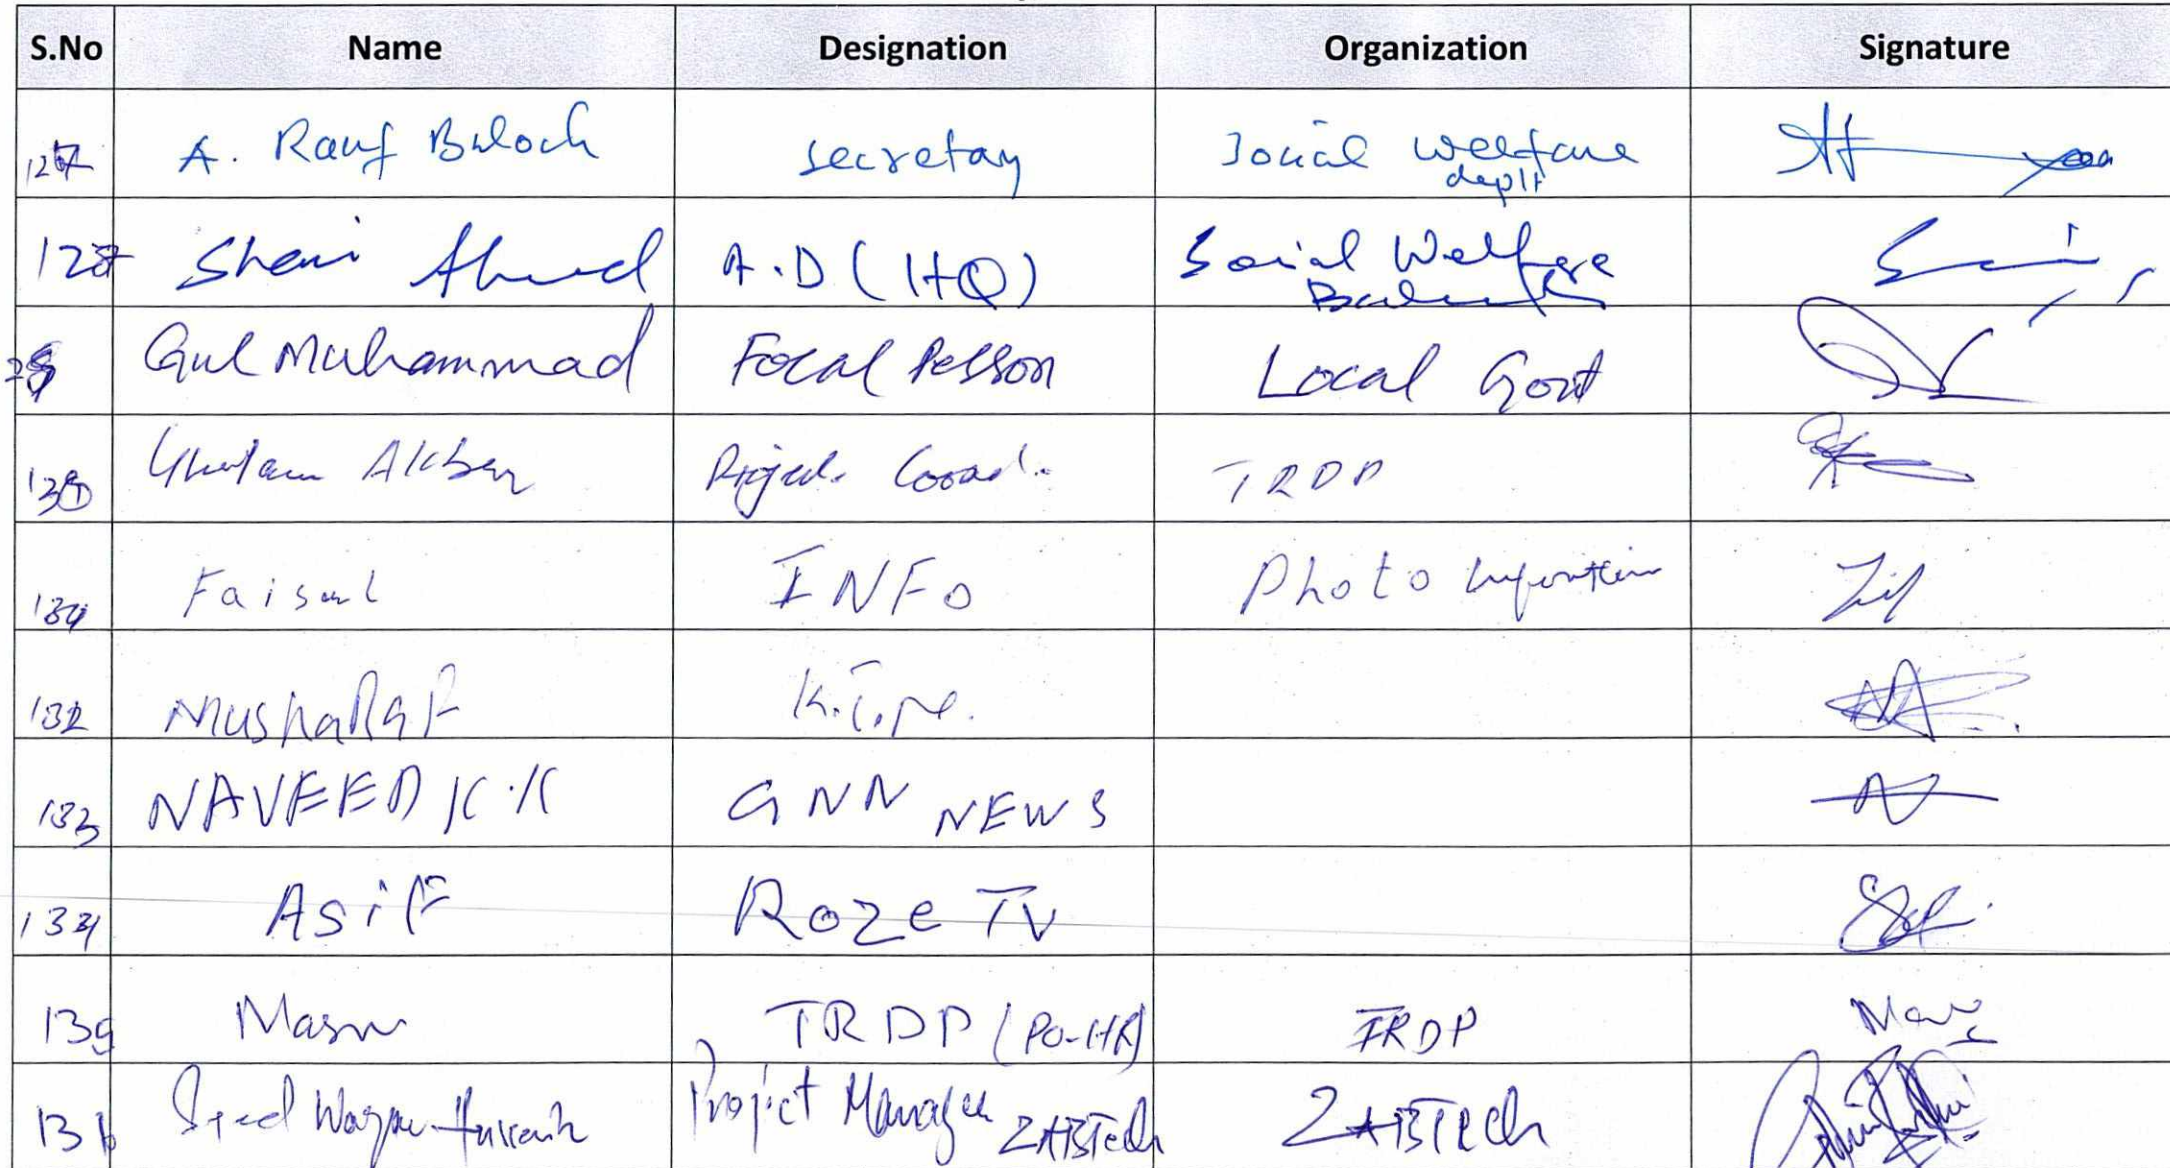 S.No Name Designation Organization Signature
127 A. Rauf Baloch secretay Social welfare
deptt
128 Ahmed A.D (HQ) Social Welfare
29 Gul Muhammad Focal Person Local Govt
130 Ghulam Akber Project Coord. TRDP
131 Faisal INFO Photo
132 MushaRaF
133 NAVEED K.K GNN NEWS
134 Asif Roze TV
135 TRDP (PO-HR) TRDP
136 Syed Project Manager ZABTech ZABTECh